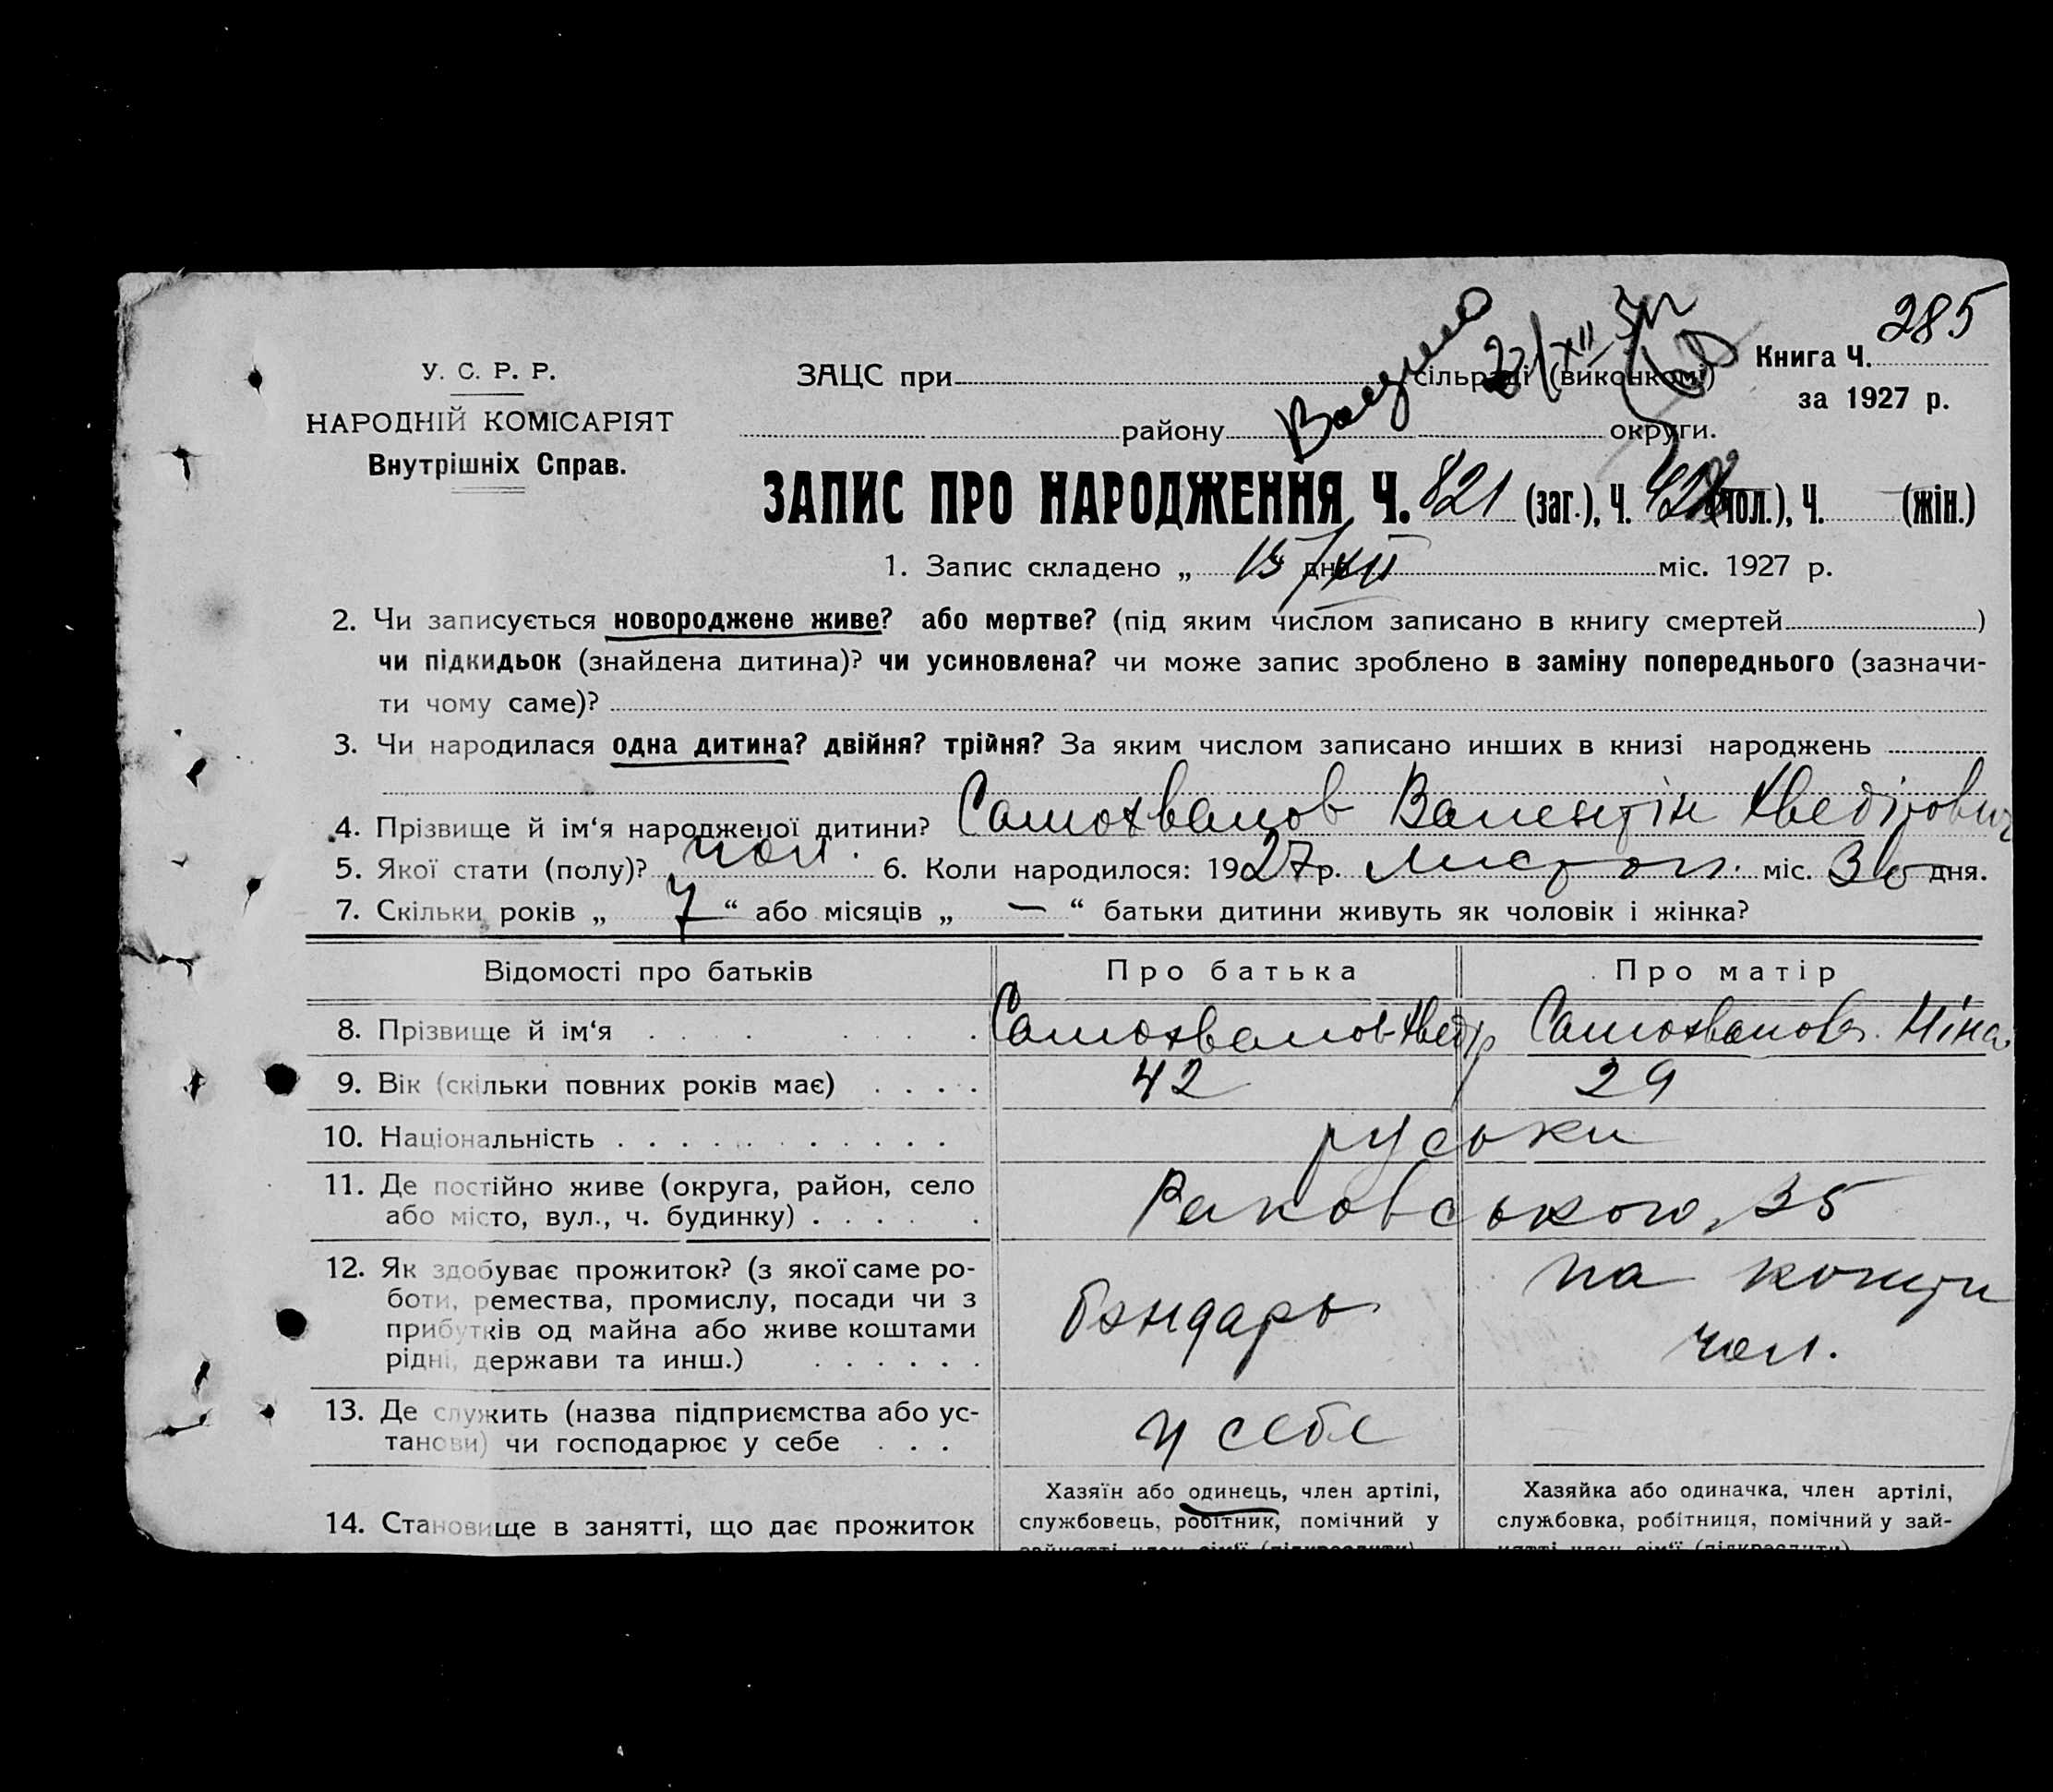 285
У. С. Р. Р.
НАРОДНІЙ КОМІСАРІЯТ
Внутрішніх Справ.
ЗАЦС при сільраді (виконкомі)
Книга Ч.
за 1927 р.
району округи.
ЗАПИС ПРО НАРОДЖЕННЯ Ч. 821 (заг.), Ч. (чол.), Ч. (жін.)
1. Запис складено „ 15/XII дня міс. 1927 р.
2. Чи записується новороджене живе? або мертве? (під яким числом записано в книгу смертей )
чи підкидьок (знайдена дитина)? чи усиновлена? чи може запис зроблено в заміну попереднього (зазначи-
ти чому саме)?
3. Чи народилася одна дитина? двійня? трійня? За яким числом записано инших в книзі народжень
4. Прізвище й ім‘я народженої дитини? Самохвалов Валентін Хведірович
5. Якої стати (полу)? чол. 6. Коли народилося: 1927 р. Листоп. міс. 30 дня.
7. Скільки років „ 7 “ або місяців „ — “ батьки дитини живуть як чоловік і жінка?
Відомості про батьків Про батька Про матір
8. Прізвище й ім‘я Самохвалов Хведір Самохвалова Ніна
9. Вік (скільки повних років має) 42 29
10. Національність руськи
11. Де постійно живе (округа, район, село
або місто, вул., ч. будинку) Раковського, 35
12. Як здобуває прожиток? (з якої саме ро-
боти, ремества, промислу, посади чи з
прибутків од майна або живе коштами
рідні, держави та инш.)
Бондарь
на кошти
чол.
13. Де служить (назва підприємства або ус-
танови) чи господарює у себе
у себе
14. Становище в занятті, що дає прожиток
Хазяїн або одинець, член артілі,
службовець, робітник, помічний у
зайнятті член сім‘ї (підкреслити)
Хазяйка або одиначка, член артілі,
службовка, робітниця, помічний у зай-
нятті член сім‘ї (підкреслити)